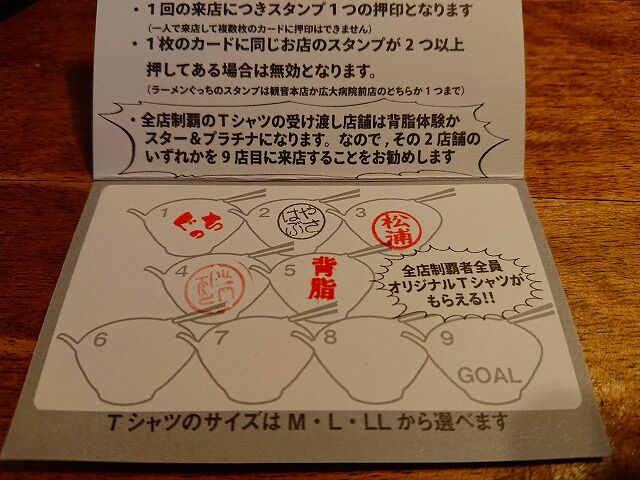 ・1回の来店につきスタンプ1つの押印となります
(一人で来店して複数枚のカードに押印はできません)
・1枚のカードに同じお店のスタンプが2つ以上
押してある場合は無効となります。
(ラーメンぐっちのスタンプは観音本店か広大病院前店のどちらか1つまで)
・全店制覇のTシャツの受け渡し店舗は背脂体験か
スター&プラチナになります。なので,その2店舗の
いずれかを9店目に来店することをお勧めします
1 ぐっち
2 はやぶさ
3 松浦
4
5 背脂
全店制覇者全員
オリジナルTシャツが
もらえる!!
6
7
8
9
GOAL
TシャツのサイズはM・L・LLから選べます